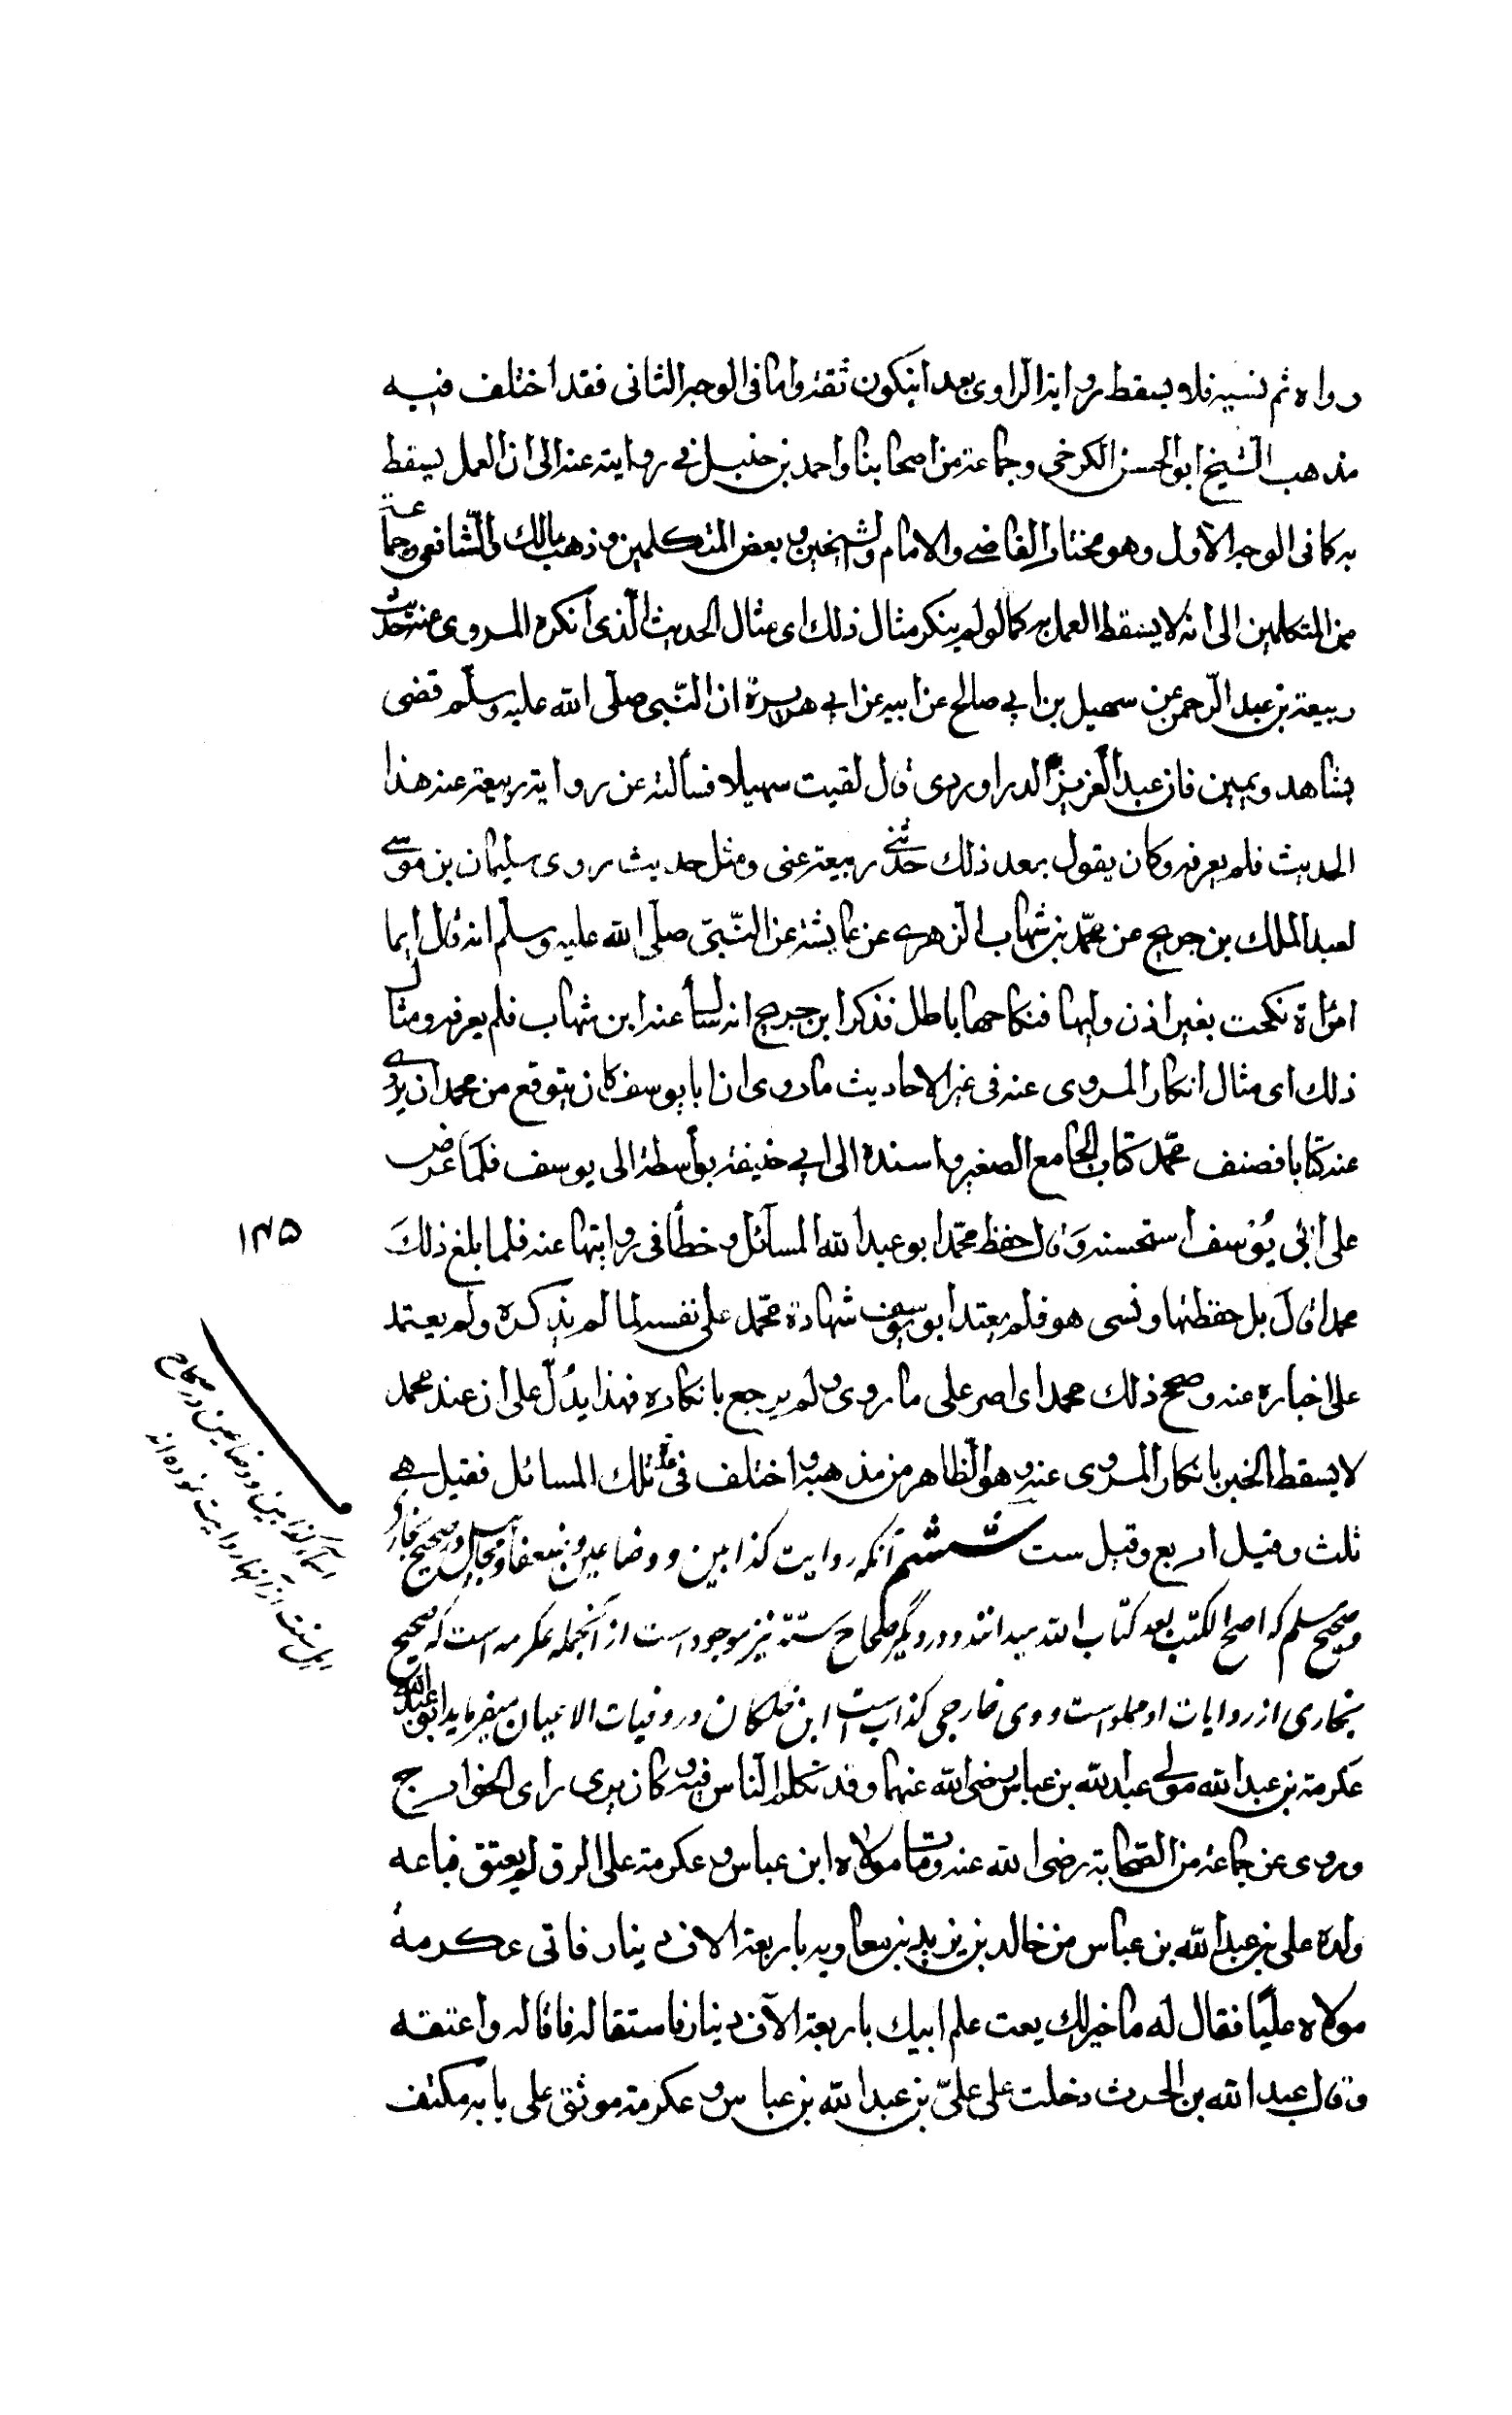 رواه ثم نسیه فلا یسقط روایة الراوی بعد ان یکون ثقة واما فی الوجه الثانی فقد اختلف فیه
مذهب الشیخ ابو الحسن الکرخی وجماعة من اصحابنا واحمد بن حنبل فی روایته عنه الی ان العمل یسقط
به کما فی الوجه الاول وهو مختار القاضی والامام والشیخین وبعض المتکلمین وذهب مالک والشافعی وجماعة
من المتکلمین الی انه لا یسقط العمل به کما لو لم ینکر مثال ذلک ای مثال الحدیث الّذی انکره المروی عنه حدیث
ربیعة بن عبد الرحمن عن سهیل بن ابی صالح عن ابیه عن ابی هریرة ان النّبی صلّی الله علیه وسلّم قضی
بشاهد ویمین فان عبد العزیز الدراوردی قال لقیت سهیلا فسألته عن روایة ربیعة عنه هذا
الحدیث فلم یعرفه وکان یقول بعد ذلک حدّثنی ربیعة عنی ومثل حدیث روی سلیمان بن موسی
لعبد الملک بن جریج عن محمّد بن شهاب الزهری عن عایشة عن النّبیّ صلّی الله علیه وسلّم انه قال ایما
امرأة نکحت بغیر اذن ولیها فنکاحها باطل فذکر ابن جریج انه سأل عنه ابن شهاب فلم یعرفه ومثال
ذلک ای مثال انکار المروی عنه فی غیر الاحادیث ما روی ان ابا یوسف کان یتوقع من محمد ان یروی
عنه کتابا فصنف محمّد کتاب الجامع الصغیر واسنده الی ابی حنیفة بواسطة ابی یوسف فلمّا عرض
علی ابی یُوسف استحسنه وَقال حفظ محمّد ابو عبد الله المسآئل وخطأ فی روایتها عنه فلما بلغ ذلکَ
محمدا قالَ بل حفظتها ونسی هو فلم یعتد ابو یوسف شهادة محمّد علی نفسه لما لم یذکره ولم یعتمد
علی اخباره عنه وصحح ذلک محمد ای اصر علی ما روی ولم یرجع بانکارهِ فهذا یدُلّ علی ان عند محمد
لا یسقط الخبر بانکار المروی عنه وهو الظّاهر من مذهبه واختلف فی عدة تلک المسائل فقیل هی
ثلث وقیل اربع وقیل ست ششم آنکه روایت کذابین و وضاعین وضعفا ومجاهیل در صحیح بخاری
وصحیح مسلم که اصح الکتب بعد کتاب الله میدانند ودر دیگر صحاح ستّه نیز موجود است از آنجمله عکرمه است که صحیح
بخاری از روایات او مملو است و وی خارجی کذاب است ابن خلکان در وفیات الاعیان میفرماید ابو عبد الله
عکرمة بن عبد الله مولی عبد الله بن عباس رضی الله عنهما وقد تکلم النّاس فیه وکان یری رای الخوارج
وروی عن جماعة من الصّحابة رضی الله عنه ومات مولاه ابن عباس وعکرمة علی الرق لم یعتق فباعه
ولده علی بن عبد الله بن عباس من خالد بن یزید بن معاویه باربعة الاف دینار فاتی عکرمةُ
مولاه علیًّا فقال لَه ما خیر لک بعت علم ابیک باربعة الآف دینار فاستقاله فاقاله واعتقه
وقال عبد الله بن الحرث دخلت علی علیّ بن عبد الله بن عباس وعکرمة موثق علی بابه مکتف
۱۲۵
اسماء کذابین و وضاعین در صحاح
اهل سنت از آنها روایت نموده‌اند